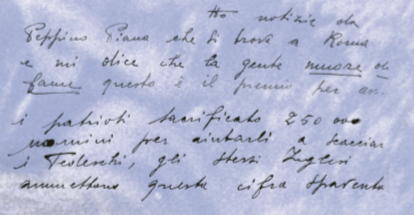 Ho notizie da
Peppino Piana che si trova a Roma
e mi dice che la gente muore di
fame questo è il premio per av.
i patrioti sacrificato 250 000
uomini per aiutarli a scacciar
i Tedeschi, gli stessi Inglesi
ammettono questa cifra spavento